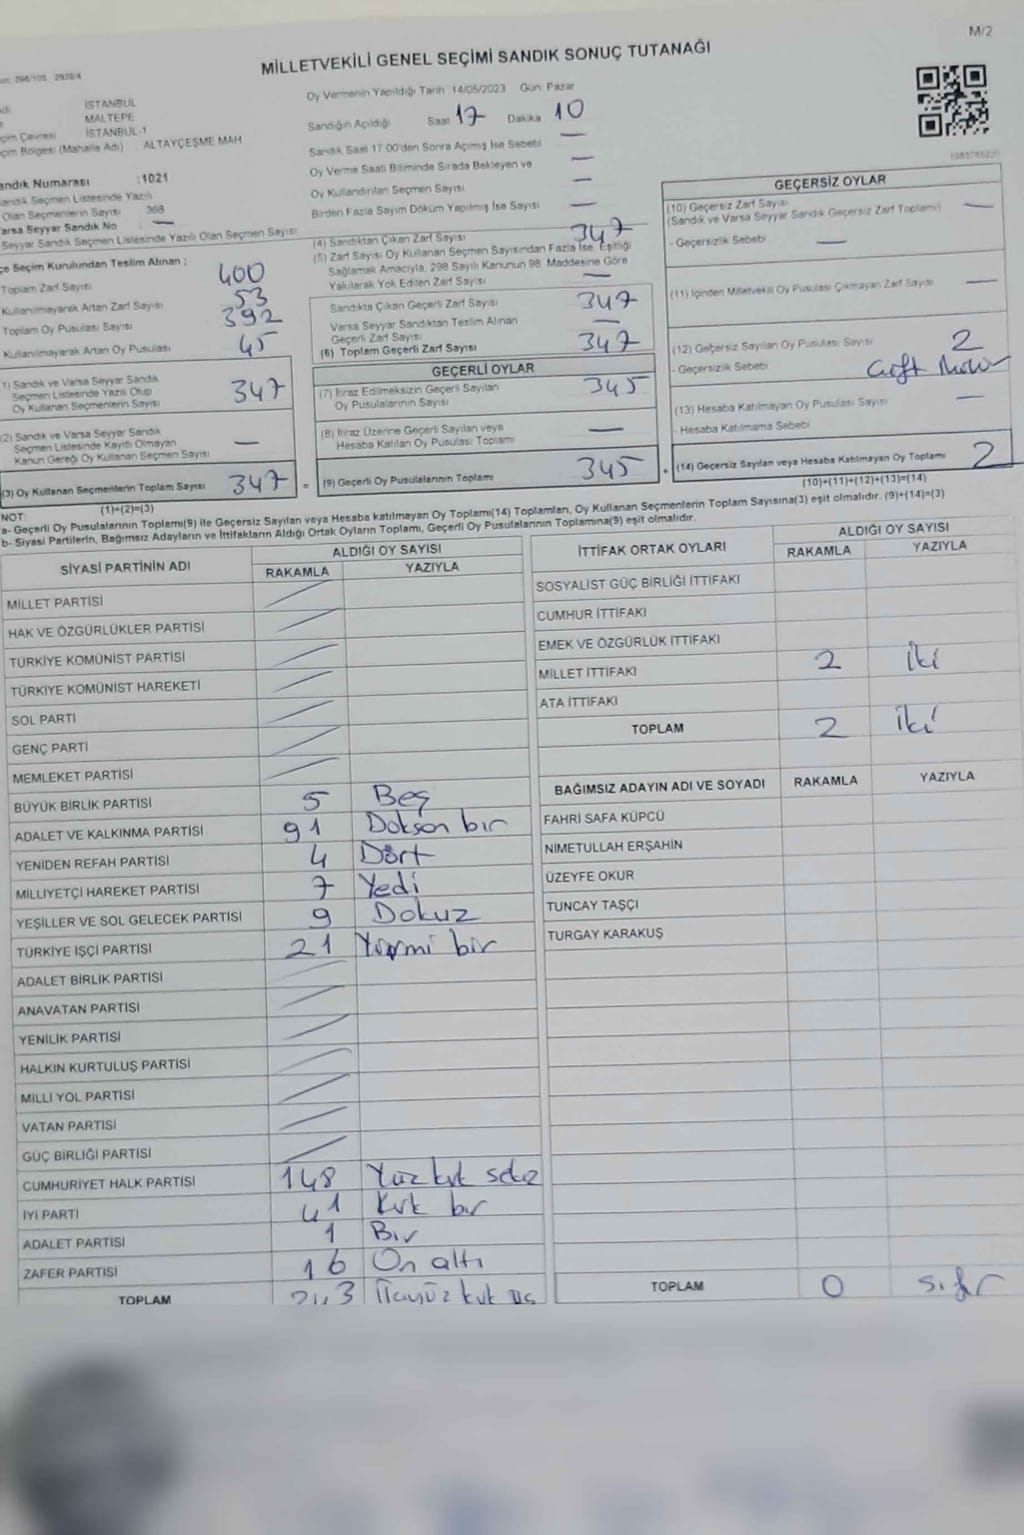 M/2
MİLLETVEKİLİ GENEL SEÇİMİ SANDIK SONUÇ TUTANAĞI
Oy Vermenin Yapıldığı Tarih 14/05/2023 Gün: Pazar
İSTANBUL
MALTEPE
İSTANBUL-1
(Mahalle Adı) : ALTAYÇEŞME MAH
Sandığın Açıldığı Saat 17 Dakika 10
Sandık Saat 17:00'den Sonra Açımış İse Sebebi —
Oy Verme Saati Bitiminde Sırada Bekleyen ve
Oy Kullandırılan Seçmen Sayısı —
Birden Fazla Sayım Döküm Yapılmış İse Sayısı —
Numarası :1021
Seçmen Listesinde Yazılı
Olan Seçmenlerin Sayısı 368
Varsa Seyyar Sandık No —
Seyyar Sandık Seçmen Listesinde Yazılı Olan Seçmen Sayısı:
Seçim Kurulundan Teslim Alınan ;
Toplam Zarf Sayısı 400
Kullanılmayarak Artan Zarf Sayısı 53
Toplam Oy Pusulası Sayısı 392
Kullanılmayarak Artan Oy Pusulası 45
1) Sandık ve Varsa Seyyar Sandık
Seçmen Listesinde Yazılı Olup
Oy Kullanan Seçmenlerin Sayısı 347
(2) Sandık ve Varsa Seyyar Sandık
Seçmen Listesinde Kayıtlı Olmayan
Kanun Gereği Oy Kullanan Seçmen Sayısı —
(3) Oy Kullanan Seçmenlerin Toplam Sayısı 347 =
(1)+(2)=(3)
(4) Sandıktan Çıkan Zarf Sayısı 347
(5) Zarf Sayısı Oy Kullanan Seçmen Sayısından Fazla İse, Eşitliği
Sağlamak Amacıyla, 298 Sayılı Kanunun 98. Maddesine Göre
Yakılarak Yok Edilen Zarf Sayısı —
Sandıkta Çıkan Geçerli Zarf Sayısı 347
Varsa Seyyar Sandıktan Teslim Alınan
Geçerli Zarf Sayısı —
(6) Toplam Geçerli Zarf Sayısı 347
GEÇERLİ OYLAR
(7) İtiraz Edilmeksizin Geçerli Sayılan
Oy Pusulalarının Sayısı 345
(8) İtiraz Üzerine Geçerli Sayılan veya
Hesaba Katılan Oy Pusulası Toplamı —
(9) Geçerli Oy Pusulalarının Toplamı 345 +
GEÇERSİZ OYLAR
(10) Geçersiz Zarf Sayısı
(Sandık ve Varsa Seyyar Sandık Geçersiz Zarf Toplamı) —
- Geçersizlik Sebebi —
(11) İçinden Milletvekili Oy Pusulası Çıkmayan Zarf Sayısı —
(12) Geçersiz Sayılan Oy Pusulası Sayısı 2
- Geçersizlik Sebebi Çift
(13) Hesaba Katılmayan Oy Pusulası Sayısı —
- Hesaba Katılmama Sebebi
(14) Geçersiz Sayılan veya Hesaba Katılmayan Oy Toplamı 2
(10)+(11)+(12)+(13)=(14)
NOT:
a- Geçerli Oy Pusulalarının Toplamı(9) ile Geçersiz Sayılan veya Hesaba katılmayan Oy Toplamı(14) Toplamları, Oy Kullanan Seçmenlerin Toplam Sayısına(3) eşit olmalıdır. (9)+(14)=(3)
b- Siyasi Partilerin, Bağımsız Adayların ve İttifakların Aldığı Ortak Oyların Toplamı, Geçerli Oy Pusulalarının Toplamına(9) eşit olmalıdır.
SİYASİ PARTİNİN ADI ALDIĞI OY SAYISI
RAKAMLA YAZIYLA
MİLLET PARTİSİ
HAK VE ÖZGÜRLÜKLER PARTİSİ
TÜRKİYE KOMÜNİST PARTİSİ
TÜRKİYE KOMÜNİST HAREKETİ
SOL PARTİ
GENÇ PARTİ
MEMLEKET PARTİSİ
BÜYÜK BİRLİK PARTİSİ 5 Beş
ADALET VE KALKINMA PARTİSİ 91 Doksan bir
YENİDEN REFAH PARTİSİ 4 Dört
MİLLİYETÇİ HAREKET PARTİSİ 7 Yedi
YEŞİLLER VE SOL GELECEK PARTİSİ 9 Dokuz
TÜRKİYE İŞÇİ PARTİSİ 21 Yirmi bir
ADALET BİRLİK PARTİSİ
ANAVATAN PARTİSİ
YENİLİK PARTİSİ
HALKIN KURTULUŞ PARTİSİ
MİLLİ YOL PARTİSİ
VATAN PARTİSİ
GÜÇ BİRLİĞİ PARTİSİ
CUMHURİYET HALK PARTİSİ 148 Yüz kırk sekiz
İYİ PARTİ 41 Kırk bir
ADALET PARTİSİ 1 Bir
ZAFER PARTİSİ 16 On altı
TOPLAM 343 Üçyüz kırk üç
İTTİFAK ORTAK OYLARI ALDIĞI OY SAYISI
RAKAMLA YAZIYLA
SOSYALİST GÜÇ BİRLİĞİ İTTİFAKI
CUMHUR İTTİFAKI
EMEK VE ÖZGÜRLÜK İTTİFAKI
MİLLET İTTİFAKI 2 İki
ATA İTTİFAKI
TOPLAM 2 İki
BAĞIMSIZ ADAYIN ADI VE SOYADI RAKAMLA YAZIYLA
FAHRİ SAFA KÜPCÜ
NİMETULLAH ERŞAHİN
ÜZEYFE OKUR
TUNCAY TAŞÇI
TURGAY KARAKUŞ
TOPLAM 0 Sıfır